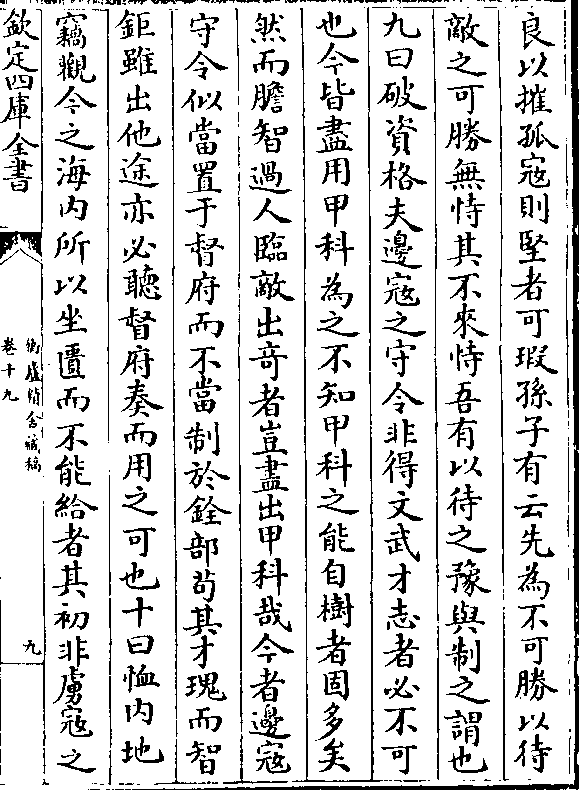 良以摧孤宼則堅者可瑕孫子有云先為不可勝以待
敵之可勝無恃其不來恃吾有以待之豫與制之謂也
九曰破資格夫邊宼之守令非得文武才志者必不可
也今皆盡用甲科為之不知甲科之能自樹者固多矣
然而膽智過人臨敵出竒者豈盡出甲科哉今者邊宼
守令似當置于督府而不當制於銓部茍其才瑰而智
鉅雖出他途亦必聽督府奏而用之可也十曰恤内地
竊觀今之海内所以坐匱而不能給者其初非虜宼之
欽定四庫全書
衡廬精舍藏稿
卷十九
九